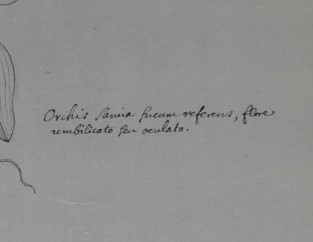 Orchis Sania fucum referens, flore
umbilicato seu oculato.